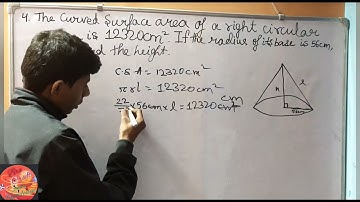 4. The Curved Surface area of a right circular
is 12320cm² If the radius of its base is 56cm,
the height.
C.S A = 12320cm²
πrl = 12320cm²
22 × 56cm × l = 12320 cm cm
h
l
56cm